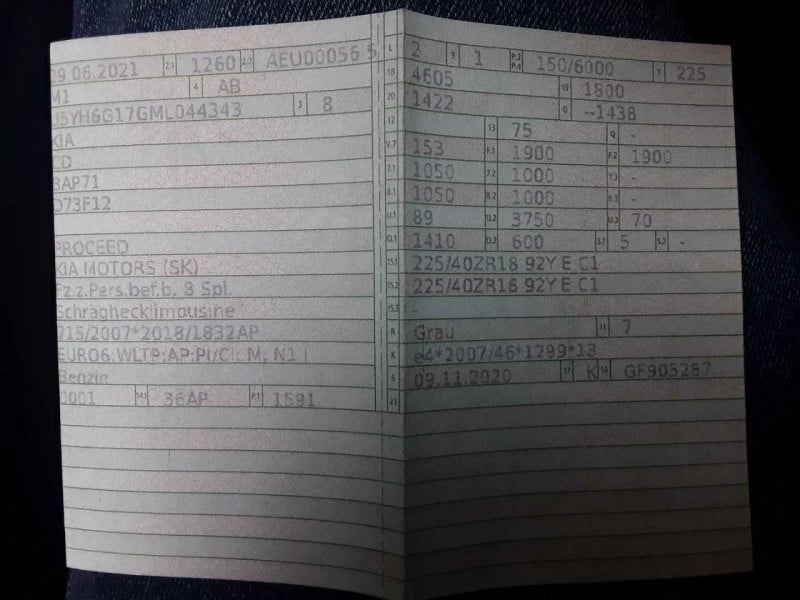 9.06.2021 2.1 1260 2.2 AEU00056 5
M1 4 AB
U5YH6G17GML044343 3 8
KIA
CD
BAP71
D73F12
PROCEED
KIA MOTORS (SK)
Fz.z.Pers.bef.b. 8 Spl.
Schrägheckl imousine
715/2007*2018/1832AP
EURO6;WLTP;AP;PI/CI; M, N1 I
Benzin
0001 14.1 36AP P.1 1591
L 2 9 1 P.2 P.4 150/6000 T 225
18 4605 19 1800
20 1422 G --1438
12 13 75 Q -
V.7 153 F.1 1900 F.2 1900
7.1 1050 7.2 1000 7.3 -
8.1 1050 8.2 1000 8.3 -
U.1 89 U.2 3750 U.3 70
O.1 1410 O.2 600 S.1 5 S.2 -
15.1 225/40ZR18 92Y E C1
15.2 225/40ZR18 92Y E C1
15.3 -
R Grau 11 7
K e4*2007/46*1299*13
6 09.11.2020 17 K 16 GF905287
21